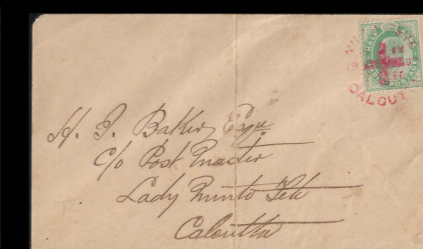 HALF
CALCUTTA
H. J. Baker, Esqre
c/o Post Master
Lady Minto Fete
Calcutta